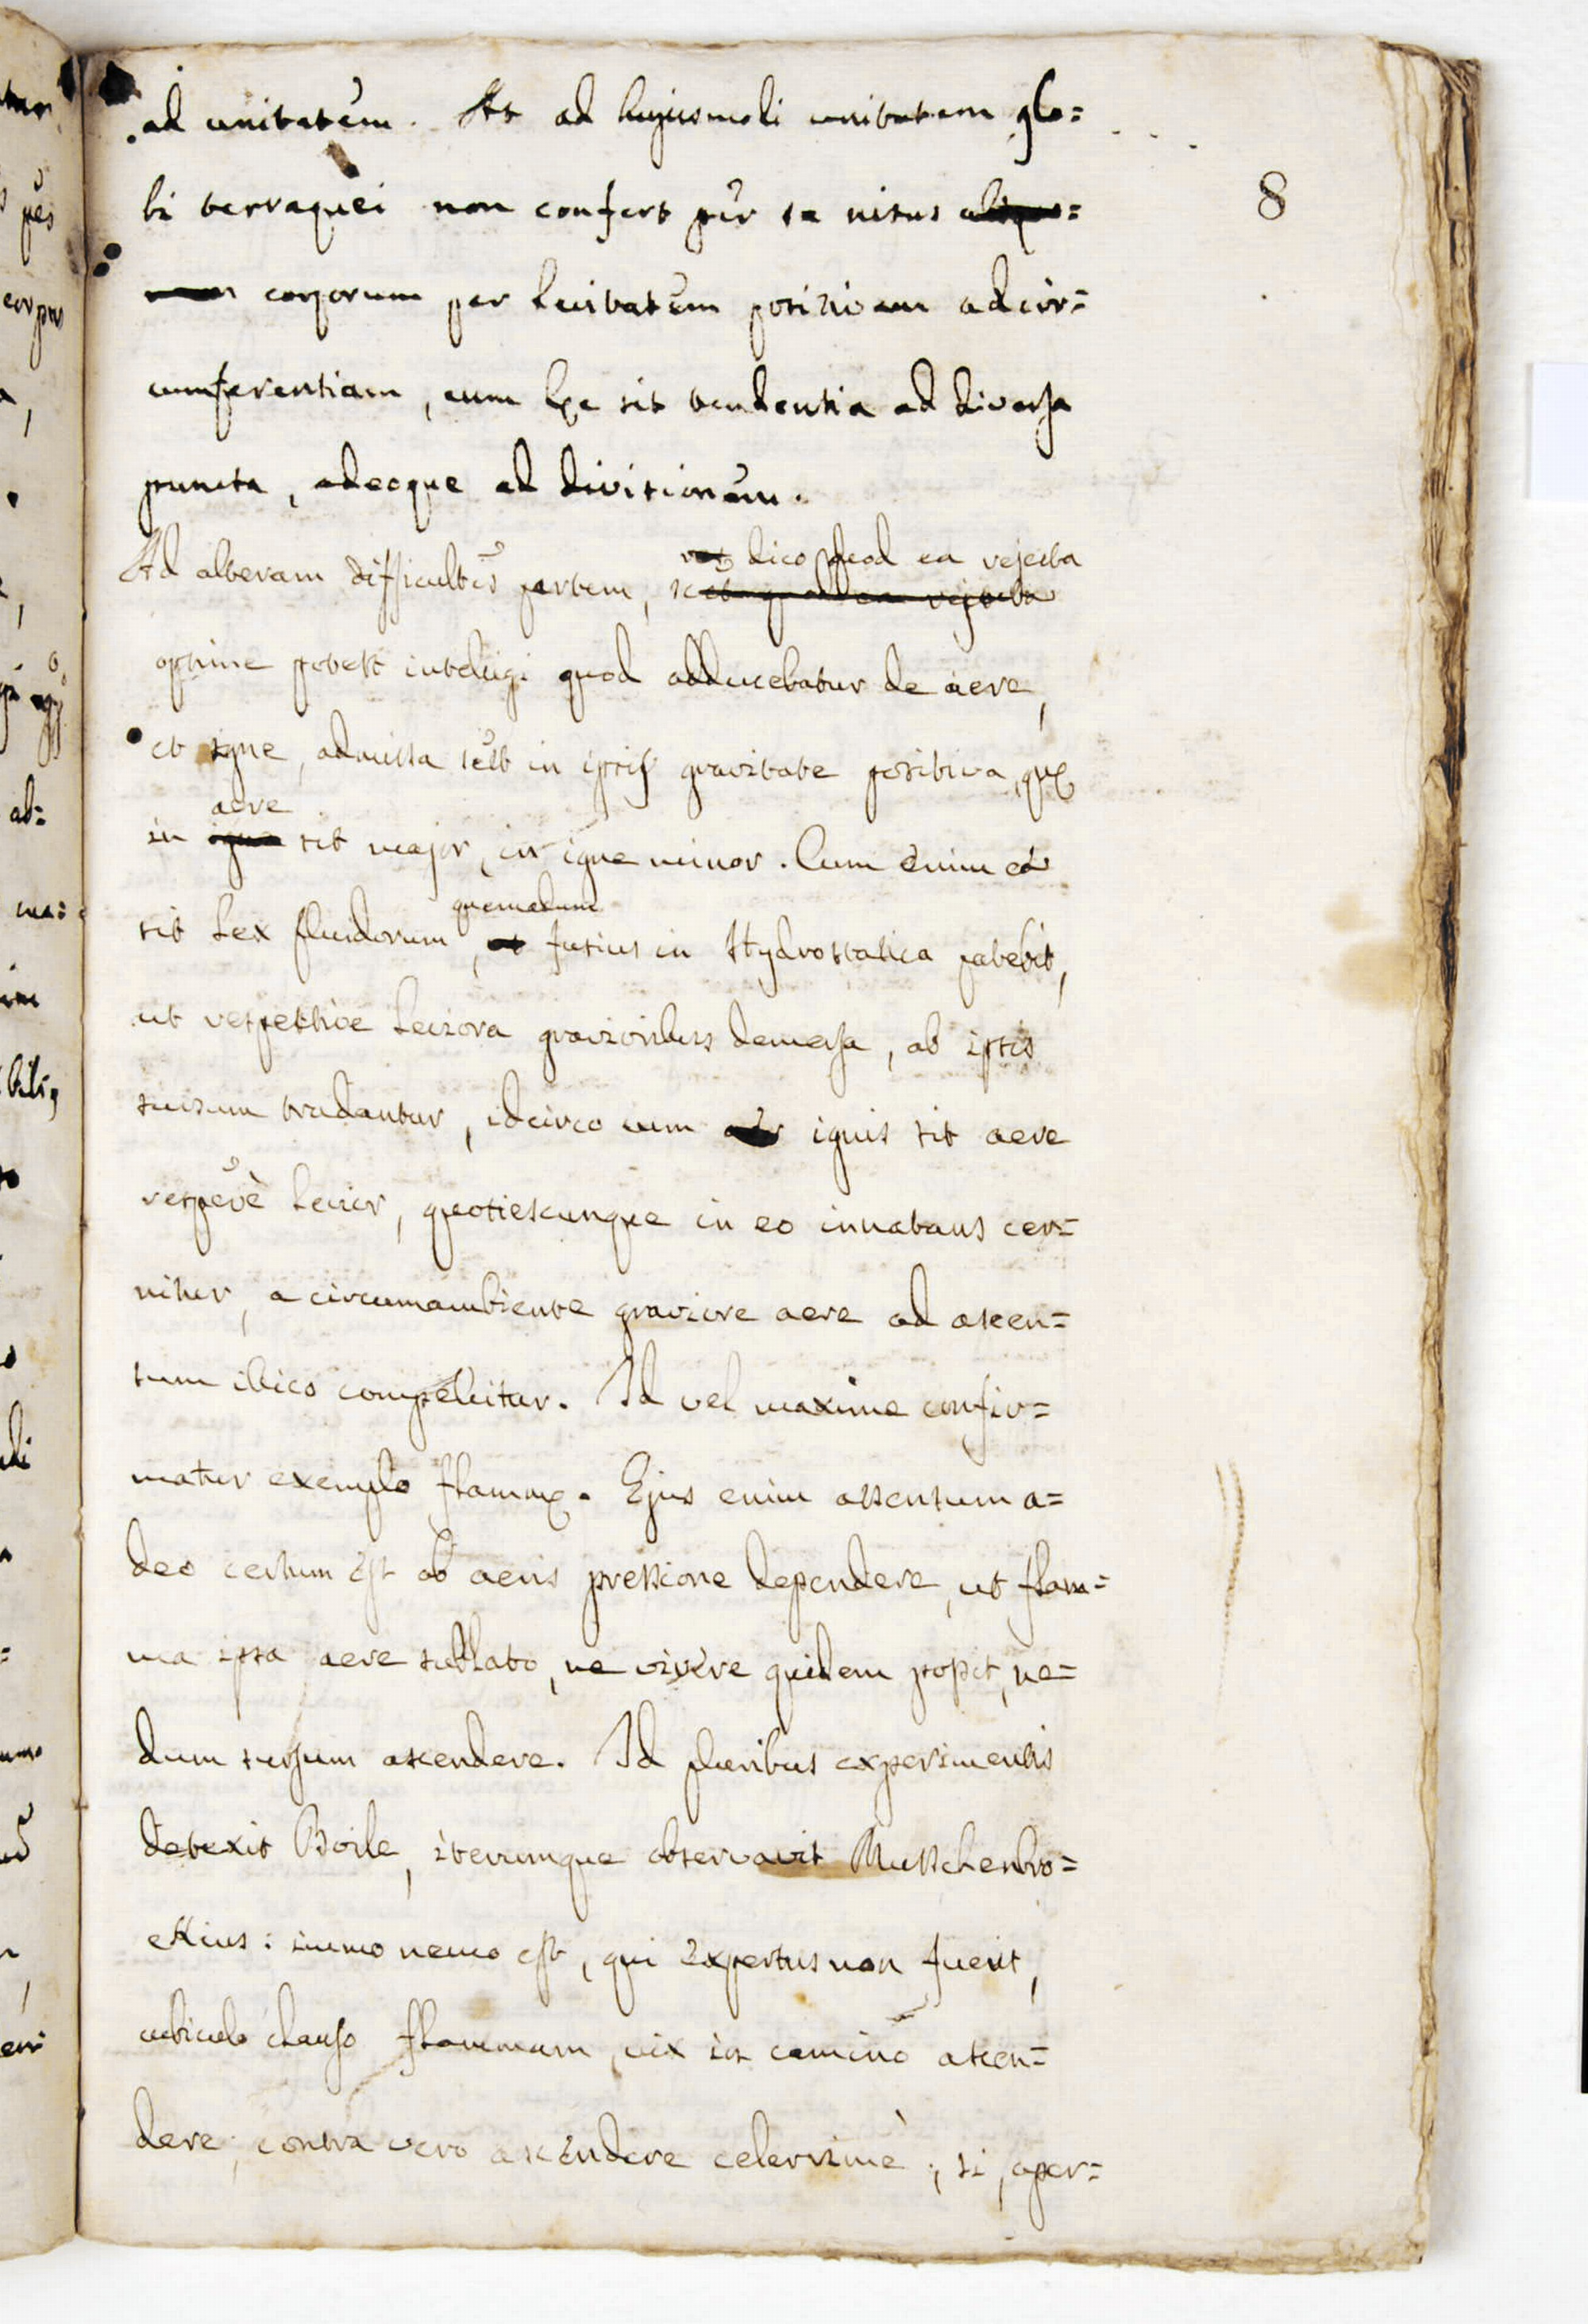 ad unitatem. At ad hujusmodi unitatem glo=
bi terraquei non confert per se nisus aliquo=
8
corporum per levitatem positivam ad cir=
cumferentiam, cum hęc sit tendentia ad diversa
puncta, adeoque ad divisionem.
dico quod ea rejecta
Ad alteram difficultis partem, scito quod ea rejecta
optime potest intelligi quod adducebatur de aere,
et igne, admissa scilt in ipsis gravitate positiva, quę
aere
in igne sit major, in igne minor. Cum enim ea
quemadum
sit Lex fluidorum, ut fusius in Hydrostatica patebit,
ut respective leviora gravioribus demersa, ab ipsis
sursum trudantur, idcirco cum aer ignis sit aere
respevè levior, quotiescunque in eo innatans cer=
nitur, a circumambiente graviore aere ad ascen=
sum illico compellitur. Id vel maxime confir=
matur exemplo flammę. Ejus enim ascensum a=
deo certum est ab aeris pressione dependere, ut flam=
ma ipsa aere sublato, ne vivere quidem possit, ne=
dum sursum ascendere. Id pluribus experimentis
detexit Boile, iterumque observavit Musschenbro=
ekius: immo nemo est, qui expertus non fuerit,
cubiculo clauso flammam vix in camino ascen=
dere, contra vero ascendere celerrimè, si, aper=